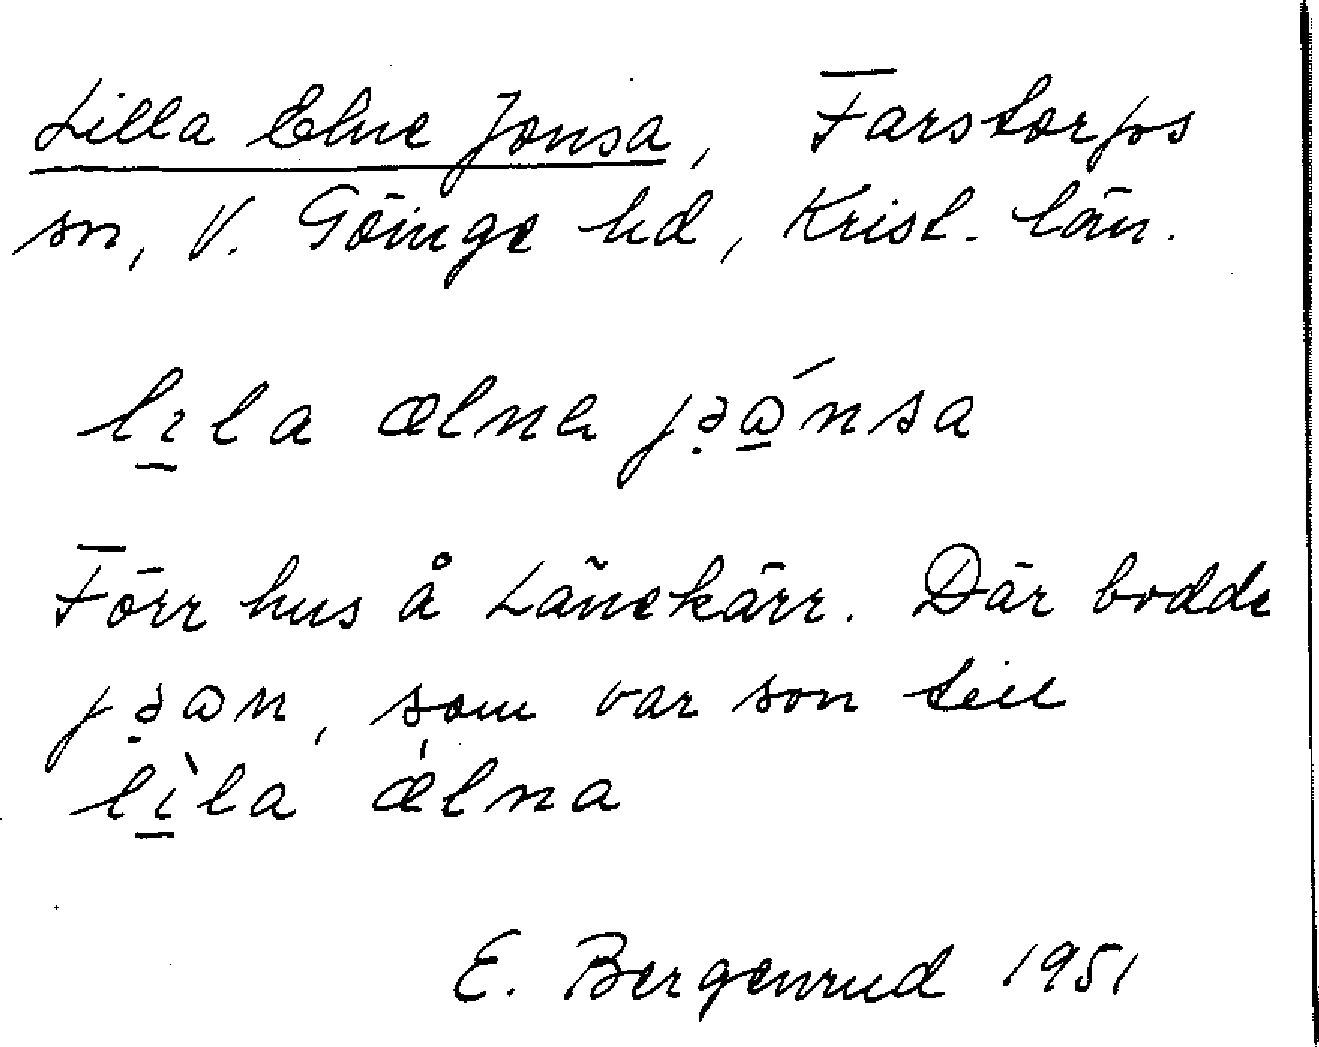 Lilla Elne Jönsa, Farstorps
sn, V. Göinge hd, Krist. län.
lıla ælna jəɷ́nsa
Förr hus å Länekärr. Där bodde
jəɷn, som var son till
lìla ǽlna
E. Bergenrud 1951